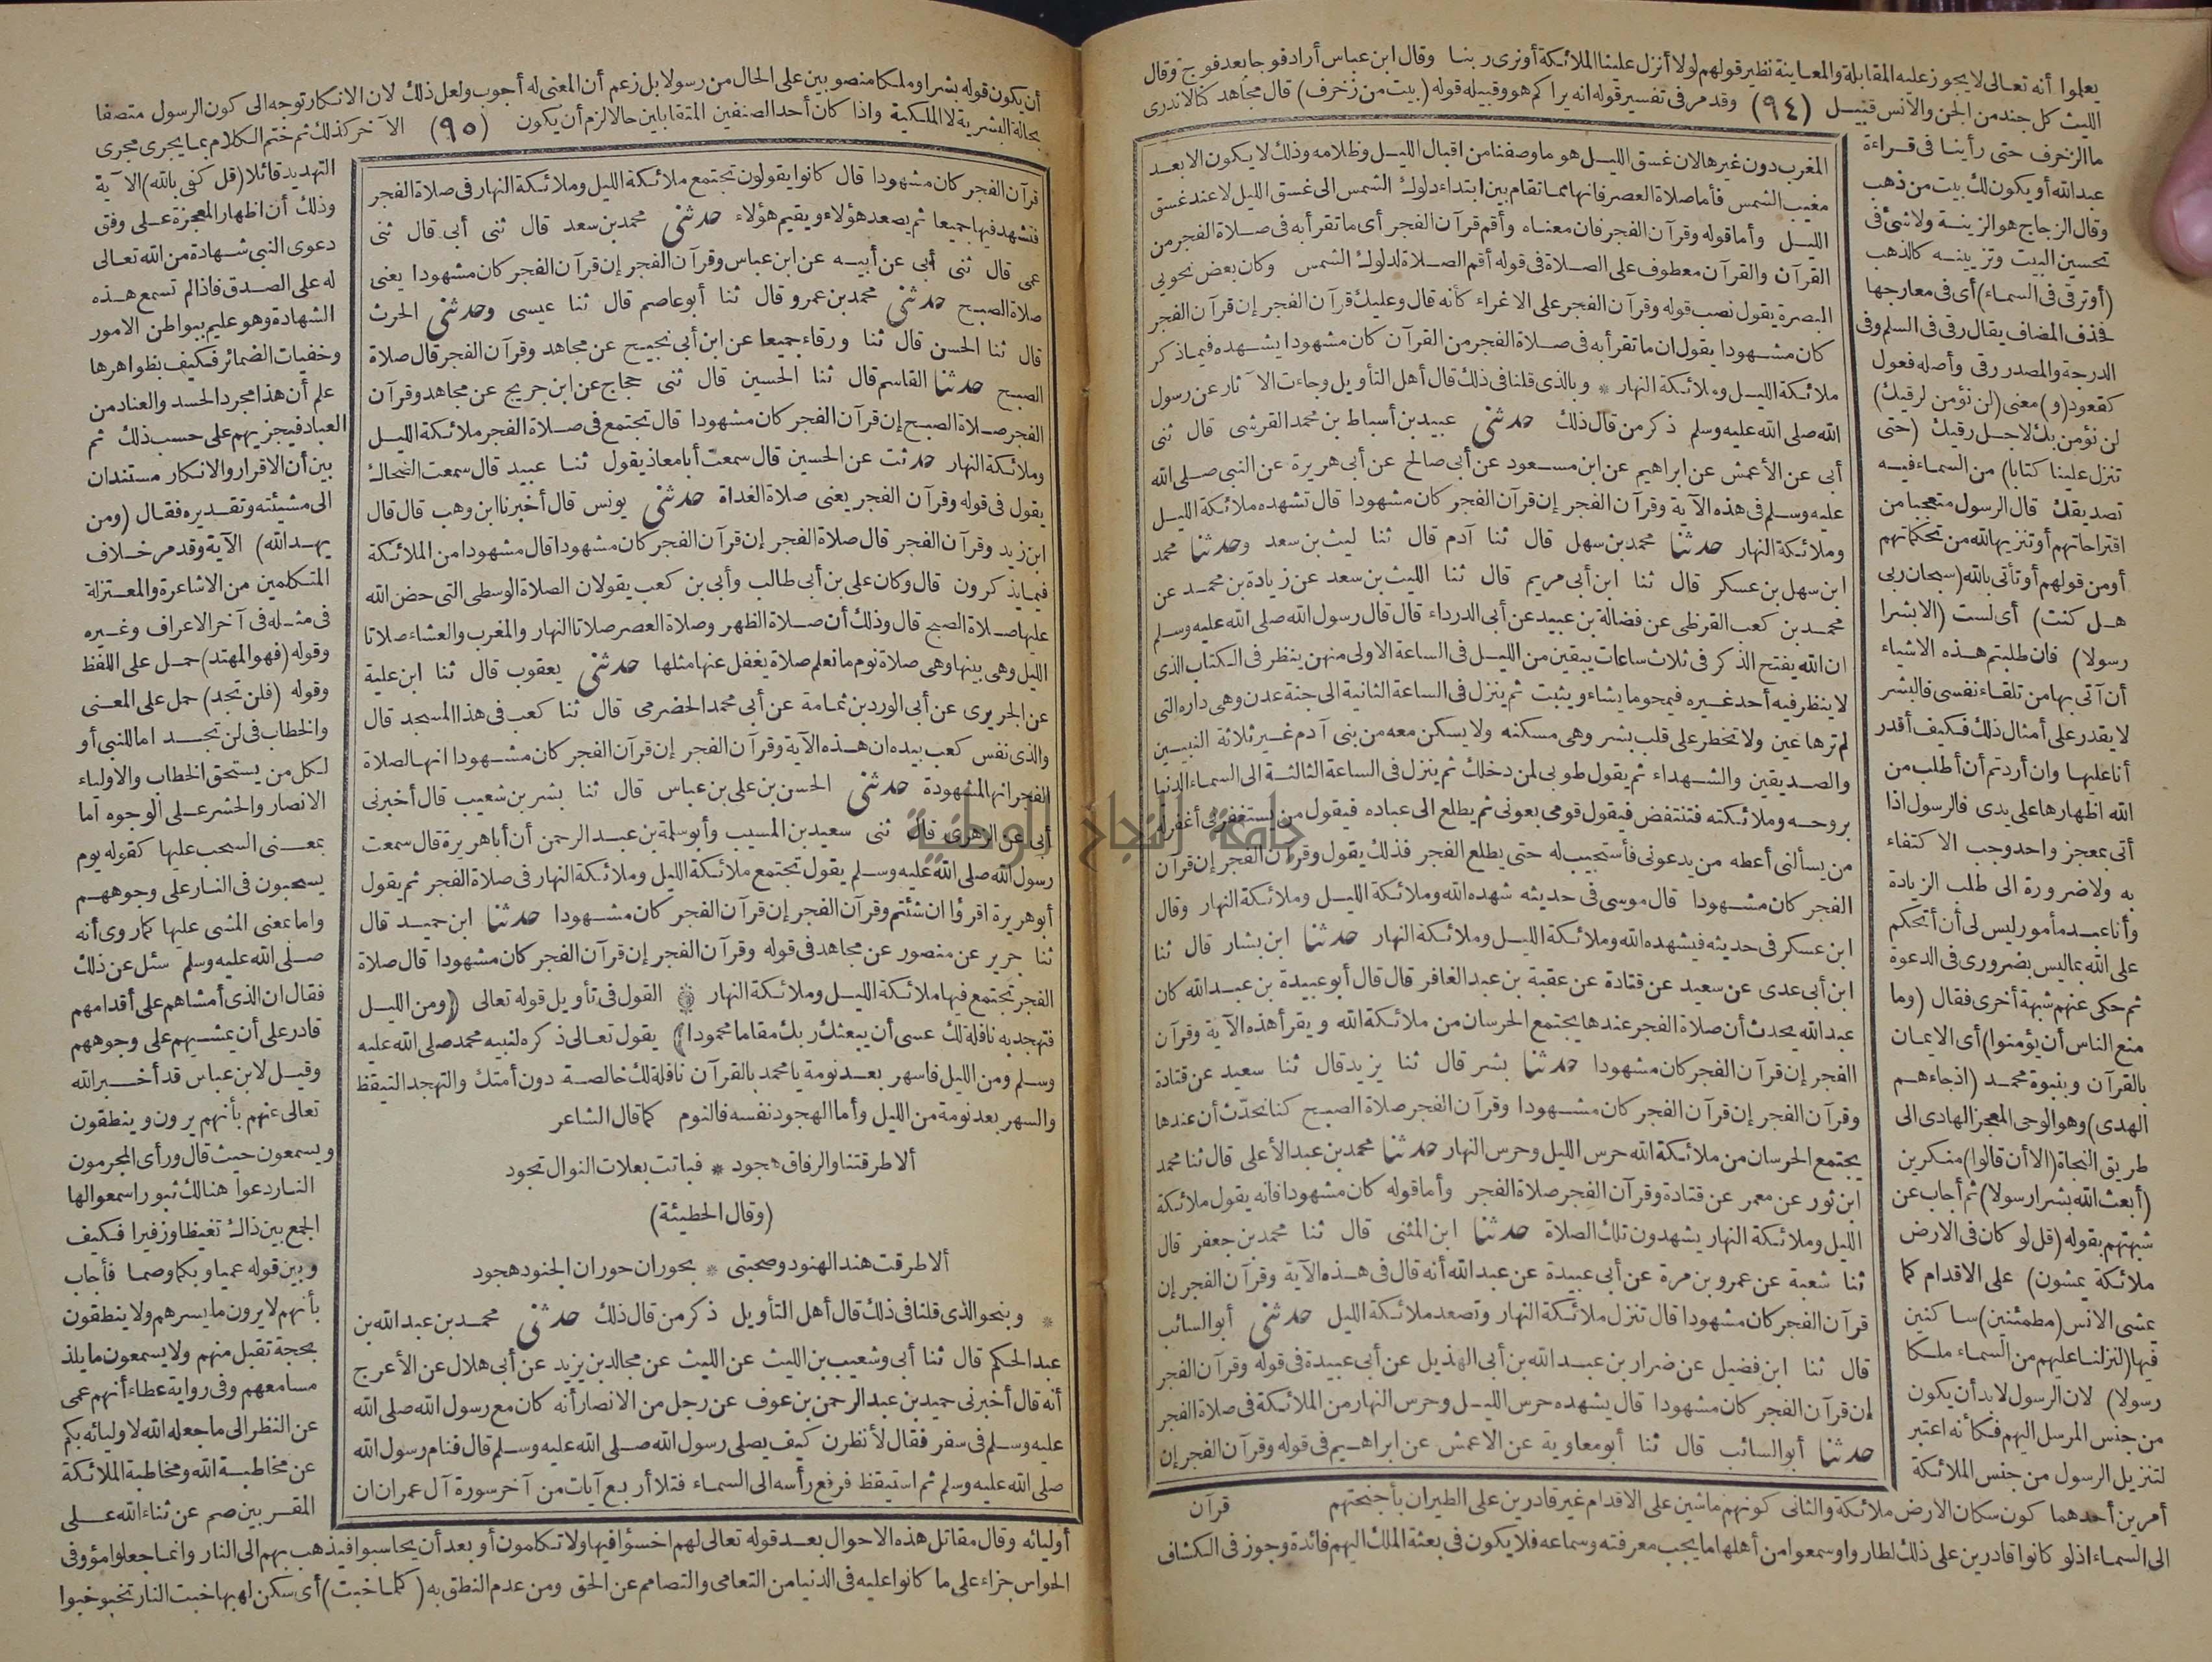 يعلموا أنه تعالى لا يجوز عليه المقابلة والمعاينة نظير قولهم لولا أنزل علينا الملائكة أو نرى ربنا وقال ابن عباس أراد فوجا بعد فوج وقال
الليث كل جند من الجن والانس قبيل (٩٤) وقد مر فى تفسير قوله انه يراكم هو وقبيله قوله (بيت من زخرف) قال مجاهد كنا لا ندرى
ما الزخرف حتى رأينا فى قراءة
عبد الله أو يكون لك بيت من ذهب
وقال الزجاج هو الزينة ولا شئ فى
تحسين البيت وتزيينه كالذهب
(أو ترقى فى السماء) أى فى معارجها
فحذف المضاف يقال رقى فى السلم وفى
الدرجة والمصدر رقى وأصله فعول
كقعود (و) معنى (لن نؤمن لرقيك)
لن نؤمن بك لاجل رقيك (حتى
تنزل علينا كتابا) من السماء فيه
تصديقك قال الرسول متعجبا من
اقتراحاتهم أو تنزيها لله من تحكماتهم
أو من قولهم أو تأتى بالله (سبحان ربى
هل كنت) أى لست (الا بشرا
رسولا) فان طلبتم هذه الاشياء
أن آتى بها من تلقاء نفسى فالبشر
لا يقدر على أمثال ذلك فكيف أقدر
أنا عليها وان أردتم أن أطلب من
الله اظهارها على يدى فالرسول اذا
أتى بمعجز واحد وجب الاكتفاء
به ولا ضرورة الى طلب الزيادة
وأنا عبد مأمور ليس لى أن أتحكم
على الله بما ليس بضرورى فى الدعوة
ثم حكى عنهم شبهة أخرى فقال (وما
منع الناس أن يؤمنوا) أى الايمان
بالقرآن وبنبوة محمد (اذ جاءهم
الهدى) وهو الوحى المعجز الهادى الى
طريق النجاة (الا أن قالوا) منكرين
(أبعث الله بشرا رسولا) ثم أجاب عن
شبهتهم بقوله (قل لو كان فى الارض
ملائكة يمشون) على الاقدام كما
يمشى الانس (مطمئنين) ساكنين
فيها (لنزلنا عليهم من السماء ملكا
رسولا) لان الرسول لابد أن يكون
من جنس المرسل اليهم فكأنه اعتبر
لتنزيل الرسول من جنس الملائكة
أمرين أحدهما كون سكان الارض ملائكة والثانى كونهم ماشين على الاقدام غير قادرين على الطيران بأجنحتهم
الى السماء اذ لو كانوا قادرين على ذلك لطاروا وسمعوا من أهلها ما يجب معرفته وسماعه فلا يكون فى بعثة الملك اليهم فائدة وجوز فى الكشاف
المغرب دون غيرها لان غسق الليل هو ما وصفنا من اقبال الليل وظلامه وذلك لا يكون الا بعد
مغيب الشمس فأما صلاة العصر فانها مما تقام بين ابتداء دلوك الشمس الى غسق الليل لا عند غسق
الليل وأما قوله وقرآن الفجر فان معناه وأقم قرآن الفجر أى ما تقرأ به فى صلاة الفجر من
القرآن والقرآن معطوف على الصلاة فى قوله أقم الصلاة لدلوك الشمس وكان بعض نحويى
البصرة يقول نصب قوله وقرآن الفجر على الاغراء كأنه قال وعليك قرآن الفجر إن قرآن الفجر
كان مشهودا يقول ان ما تقرأ به فى صلاة الفجر من القرآن كان مشهودا يشهده فيما ذكر
ملائكة الليل وملائكة النهار * وبالذى قلنا فى ذلك قال أهل التأويل وجاءت الآثار عن رسول
الله صلى الله عليه وسلم ذكر من قال ذلك حدثنى عبيد بن أسباط بن محمد القرشى قال ثنى
أبى عن الأعمش عن ابراهيم عن ابن مسعود عن أبى صالح عن أبى هريرة عن النبى صلى الله
عليه وسلم فى هذه الآية وقرآن الفجر إن قرآن الفجر كان مشهودا قال تشهده ملائكة الليل
وملائكة النهار حدثنا محمد بن سهل قال ثنا آدم قال ثنا ليث بن سعد وحدثنا محمد
ابن سهل بن عسكر قال ثنا ابن أبى مريم قال ثنا الليث بن سعد عن زيادة بن محمد عن
محمد بن كعب القرظى عن فضالة بن عبيد عن أبى الدرداء قال قال رسول الله صلى الله عليه وسلم
ان الله يفتح الذكر فى ثلاث ساعات يبقين من الليل فى الساعة الاولى منهن ينظر فى الكتاب الذى
لا ينظر فيه أحد غيره فيمحو ما يشاء ويثبت ثم ينزل فى الساعة الثانية الى جنة عدن وهى داره التى
لم ترها عين ولا تخطر على قلب بشر وهى مسكنه ولا يسكن معه من بنى آدم غير ثلاثة النبيين
والصديقين والشهداء ثم يقول طوبى لمن دخلك ثم ينزل فى الساعة الثالثة الى السماء الدنيا
بروحه وملائكته فتنتفض فيقول قومى بعونى ثم يطلع الى عباده فيقول من يستغفرنى أغفر له
من يسألنى أعطه من يدعونى فأستجيب له حتى يطلع الفجر فذلك يقول وقرآن الفجر إن قرآن
الفجر كان مشهودا قال موسى فى حديثه شهده الله وملائكة الليل وملائكة النهار وقال
ابن عسكر فى حديثه فيشهده الله وملائكة الليل وملائكة النهار حدثنا ابن بشار قال ثنا
ابن أبى عدى عن سعيد عن قتادة عن عقبة بن عبد الغافر قال قال أبو عبيدة بن عبد الله كان
عبد الله يحدث أن صلاة الفجر عندها يجتمع الحرسان من ملائكة الله ويقرأ هذه الآية وقرآن
الفجر إن قرآن الفجر كان مشهودا حدثنا بشر قال ثنا يزيد قال ثنا سعيد عن قتادة
وقرآن الفجر إن قرآن الفجر كان مشهودا وقرآن الفجر صلاة الصبح كنا نحدّث أن عندها
يجتمع الحرسان من ملائكة الله حرس الليل وحرس النهار حدثنا محمد بن عبد الأعلى قال ثنا محمد
ابن ثور عن معمر عن قتادة وقرآن الفجر صلاة الفجر وأما قوله كان مشهودا فانه يقول ملائكة
الليل وملائكة النهار يشهدون تلك الصلاة حدثنا ابن المثنى قال ثنا محمد بن جعفر قال
ثنا شعبة عن عمرو بن مرة عن أبى عبيدة عن عبد الله أنه قال فى هذه الآية وقرآن الفجر إن
قرآن الفجر كان مشهودا قال تنزل ملائكة النهار وتصعد ملائكة الليل حدثنى أبو السائب
قال ثنا ابن فضيل عن ضرار بن عبد الله بن أبى الهذيل عن أبى عبيدة فى قوله وقرآن الفجر
إن قرآن الفجر كان مشهودا قال يشهده حرس الليل وحرس النهار من الملائكة فى صلاة الفجر
حدثنا أبو السائب قال ثنا أبو معاوية عن الاعمش عن ابراهيم فى قوله وقرآن الفجر إن
قرآن
أن يكون قوله بشرا وملكا منصوبين على الحال من رسولا بل زعم أن المعنى له أجوب ولعل ذلك لان الانكار توجه الى كون الرسول متصفا
بحالة البشرية لا الملكية واذا كان أحد الصنفين المتقابلين حالا لزم أن يكون (٩٥) الآخر كذلك ثم ختم الكلام بما يجرى مجرى
قرآن الفجر كان مشهودا قال كانوا يقولون تجتمع ملائكة الليل وملائكة النهار فى صلاة الفجر
فتشهد فيها جميعا ثم يصعد هؤلاء ويقيم هؤلاء حدثنى محمد بن سعد قال ثنى أبى قال ثنى
عمى قال ثنى أبى عن أبيه عن ابن عباس وقرآن الفجر إن قرآن الفجر كان مشهودا يعنى
صلاة الصبح حدثنى محمد بن عمرو قال ثنا أبو عاصم قال ثنا عيسى وحدثنى الحرث
قال ثنا الحسن قال ثنا ورقاء جميعا عن ابن أبى نجيح عن مجاهد وقرآن الفجر قال صلاة
الصبح حدثنا القاسم قال ثنا الحسين قال ثنى حجاج عن ابن جريج عن مجاهد وقرآن
الفجر صلاة الصبح إن قرآن الفجر كان مشهودا قال تجتمع فى صلاة الفجر ملائكة الليل
وملائكة النهار حدثت عن الحسين قال سمعت أبا معاذ يقول ثنا عبيد قال سمعت الضحاك
يقول فى قوله وقرآن الفجر يعنى صلاة الغداة حدثنى يونس قال أخبرنا ابن وهب قال قال
ابن زيد وقرآن الفجر قال صلاة الفجر إن قرآن الفجر كان مشهودا قال مشهودا من الملائكة
فيما يذكرون قال وكان على بن أبى طالب وأبى بن كعب يقولان الصلاة الوسطى التى حض الله
عليها صلاة الصبح قال وذلك أن صلاة الظهر وصلاة العصر صلاتا النهار والمغرب والعشاء صلاتا
الليل وهى بينها وهى صلاة نوم ما نعلم صلاة يغفل عنها مثلها حدثنى يعقوب قال ثنا ابن علية
عن الجريرى عن أبى الورد بن ثمامة عن أبى محمد الحضرمى قال ثنا كعب فى هذا المسجد قال
والذى نفس كعب بيده ان هذه الآية وقرآن الفجر إن قرآن الفجر كان مشهودا انها لصلاة
الفجر انها لمشهودة حدثنى الحسن بن على بن عباس قال ثنا بشر بن شعيب قال أخبرنى
أبى عن الزهرى قال ثنى سعيد بن المسيب وأبو سلمة بن عبد الرحمن أن أبا هريرة قال سمعت
رسول الله صلى الله عليه وسلم يقول تجتمع ملائكة الليل وملائكة النهار فى صلاة الفجر ثم يقول
أبو هريرة اقرؤا ان شئتم وقرآن الفجر إن قرآن الفجر كان مشهودا حدثنا ابن حميد قال
ثنا جرير عن منصور عن مجاهد فى قوله وقرآن الفجر إن قرآن الفجر كان مشهودا قال صلاة
الفجر تجتمع فيها ملائكة الليل وملائكة النهار ۞ القول فى تأويل قوله تعالى (ومن الليل
فتهجد به نافلة لك عسى أن يبعثك ربك مقاما محمودا) يقول تعالى ذكره لنبيه محمد صلى الله عليه
وسلم ومن الليل فاسهر بعد نومة يا محمد بالقرآن نافلة لك خالصة دون أمتك والتهجد التيقظ
والسهر بعد نومة من الليل وأما الهجود نفسه فالنوم كما قال الشاعر
ألا طرقتنا والرفاق هجود * فباتت بعلات النوال تجود
(وقال الحطيئة)
ألا طرقت هند الهنود وصحبتى * بحوران حوران الجنود هجود
* وبنحو الذى قلنا فى ذلك قال أهل التأويل ذكر من قال ذلك حدثنى محمد بن عبد الله بن
عبد الحكم قال ثنا أبى وشعيب بن الليث عن الليث عن مجالد بن يزيد عن أبى هلال عن الأعرج
أنه قال أخبرنى حميد بن عبد الرحمن بن عوف عن رجل من الانصار أنه كان مع رسول الله صلى الله
عليه وسلم فى سفر فقال لأنظرن كيف يصلى رسول الله صلى الله عليه وسلم قال فنام رسول الله
صلى الله عليه وسلم ثم استيقظ فرفع رأسه الى السماء فتلا أربع آيات من آخر سورة آل عمران ان
التهديد قائلا (قل كفى بالله) الآية
وذلك أن اظهار المعجزة على وفق
دعوى النبى شهادة من الله تعالى
له على الصدق فاذا لم تسمع هذه
الشهادة وهو عليم ببواطن الامور
وخفيات الضمائر فكيف بظواهرها
علم أن هذا مجرد الحسد والعناد من
العباد فيجزيهم على حسب ذلك ثم
بين أن الاقرار والانكار مستندان
الى مشيئته وتقديره فقال (ومن
يهد الله) الآية وقد مر خلاف
المتكلمين من الاشاعرة والمعتزلة
فى مثله فى آخر الاعراف وغيره
وقوله (فهو المهتد) حمل على اللفظ
وقوله (فلن تجد) حمل على المعنى
والخطاب فى لن تجد اما للنبى أو
لكل من يستحق الخطاب والاولياء
الانصار والحشر على الوجوه اما
بمعنى السحب عليها كقوله يوم
يسحبون فى النار على وجوههم
واما بمعنى المشى عليها كما روى أنه
صلى الله عليه وسلم سئل عن ذلك
فقال ان الذى أمشاهم على أقدامهم
قادر على أن يمشيهم على وجوههم
وقيل لابن عباس قد أخبر الله
تعالى عنهم بأنهم يرون وينطقون
ويسمعون حيث قال ورأى المجرمون
النار دعوا هنالك ثبورا سمعوا لها
الجمع بين ذاك تغيظا وزفيرا فكيف
وبين قوله عميا وبكما وصما فأجاب
بأنهم لا يرون ما يسرهم ولا ينطقون
بحجة تقبل منهم ولا يسمعون ما يلذ
مسامعهم وفى رواية عطاء أنهم عمى
عن النظر الى ما جعله الله لاوليائه بكم
عن مخاطبة الله ومخاطبة الملائكة
المقربين صم عن ثناء الله على
أوليائه وقال مقاتل هذه الاحوال بعد قوله تعالى لهم اخسؤا فيها ولا تكلمون أو بعد أن يحاسبوا فيذهب بهم الى النار وانما جعلوا مؤوفى
الحواس جزاء على ما كانوا عليه فى الدنيا من التعامى والتصامم عن الحق ومن عدم النطق به (كلما خبت) أى سكن لهبها خبت النار تخبو خبوا
جامعة النجاح الوطنية